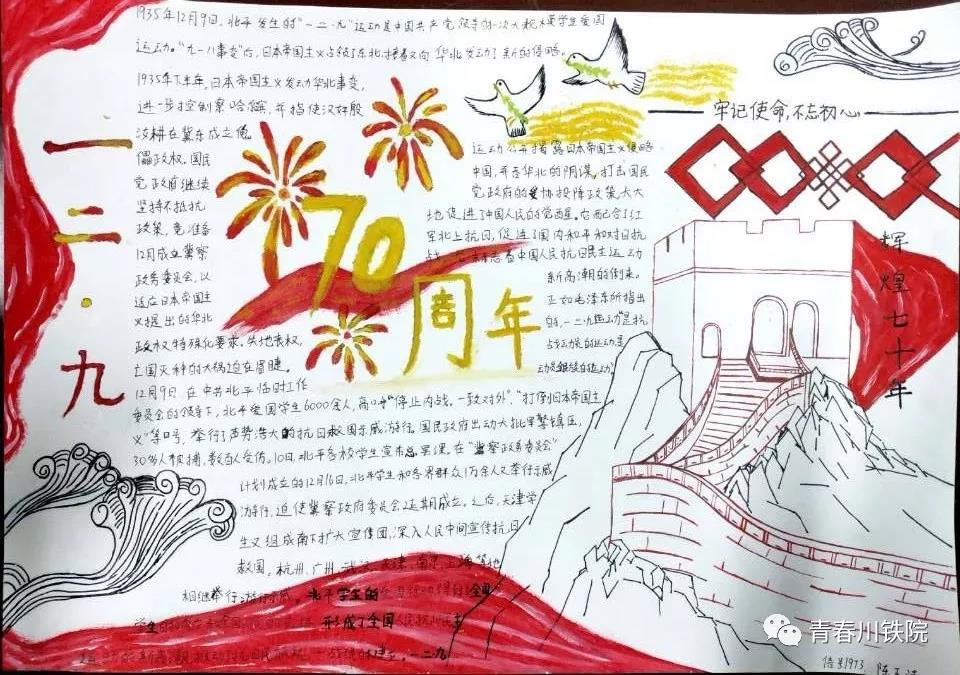 1935年12月9日,北平发生的"一二·九"运动是中国共产党领导的一次大规模学生爱国
运动。"九一八事变"后,日本帝国主义占领了东北,接着又向华北发动了新的侵略。
1935年下半年,日本帝国主义发动华北事变,
进一步控制察哈尔,并指使汉奸殷
汝耕在冀东成立傀
儡政权。国民
党政府继续
坚持不抵抗
政策,竟准备
12月成立冀察
政务委员会,以
适应日本帝国主
义提出的华北
政权特殊化要求。失地丧权,
亡国灭种的大祸迫在眉睫。
12月9日,在中共北平临时工作
委员会的领导下,北平爱国学生6000余人,高呼"停止内战,一致对外","打倒日本帝国主
义"等口号,举行了声势浩大的抗日救国示威游行。国民政府出动大批军警镇压,
30多人被捕,数百人受伤。10日,北平各校学生宣布总罢课。在"冀察政务委员会"
计划成立的12月16日,北平学生和各界群众1万余人又举行示威
游行,迫使冀察政府委员会延期成立。之后,天津学
生又组成南下扩大宣传团,深入人民中间宣传抗日
救国。杭州、广州、武汉、天津、南京、上海等地
相继举行游行示威。北平学生的
全国
学生的
形成了全国人民抗日民主
一二九
运动公开揭露日本帝国主义侵略
中国,并吞华北的阴谋,打击国民
党政府的妥协投降政策,大大
地促进了中国人民的觉醒。它配合了红
军北上抗日,促进了国内和平和对日抗
战。它标志着中国人民抗日民主运动
新高潮的到来。
正如毛泽东所指出
的,一二·九运动"是抗
战动员的运动,是
一二·九
70
周年
牢记使命,不忘初心
辉煌七十年
青春川铁院